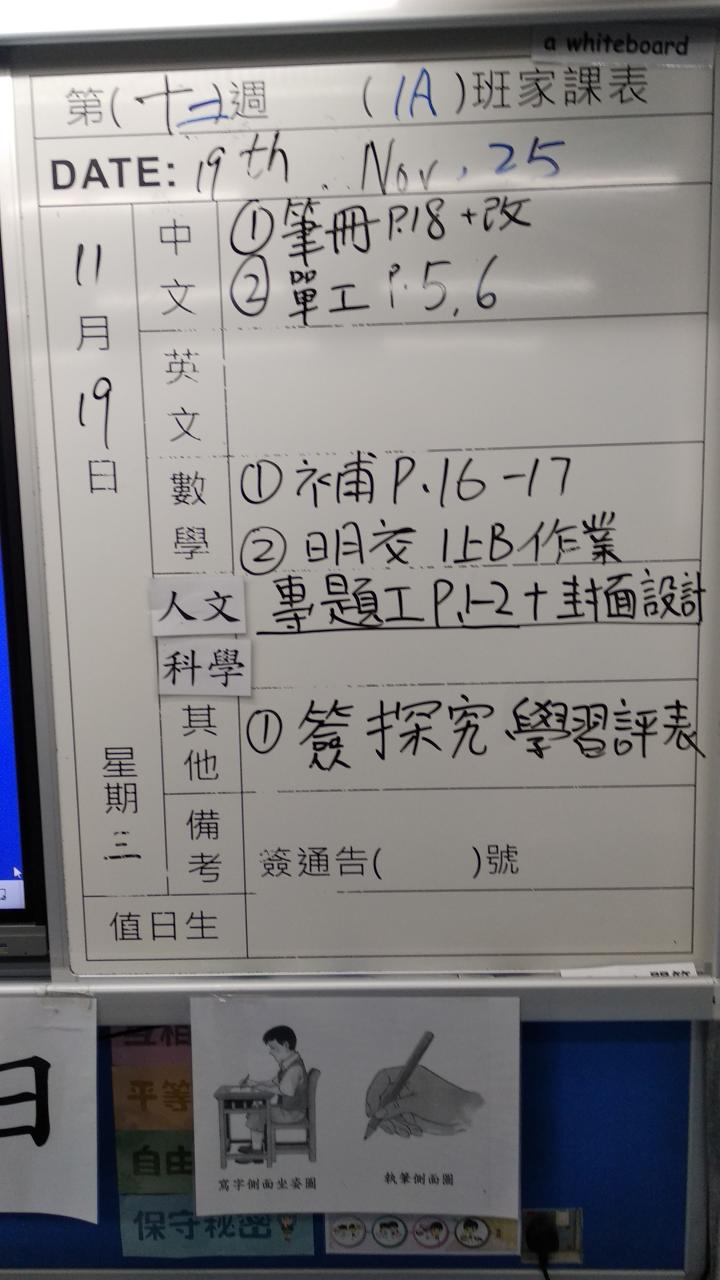 a whiteboard
第(十二)週 (1A)班家課表
DATE: 19th . Nov . 25
11月19日
星期三
中文
①筆冊P.18+改
②單工P.5,6
英文
數學
①補P.16-17
②明交1上B作業
人文
專題工P.1-2+封面設計
科學
其他
①簽探究學習評表
備考
簽通告( )號
值日生
日
平等
自由
保守秘密
寫字側面坐姿圖
執筆側面圖